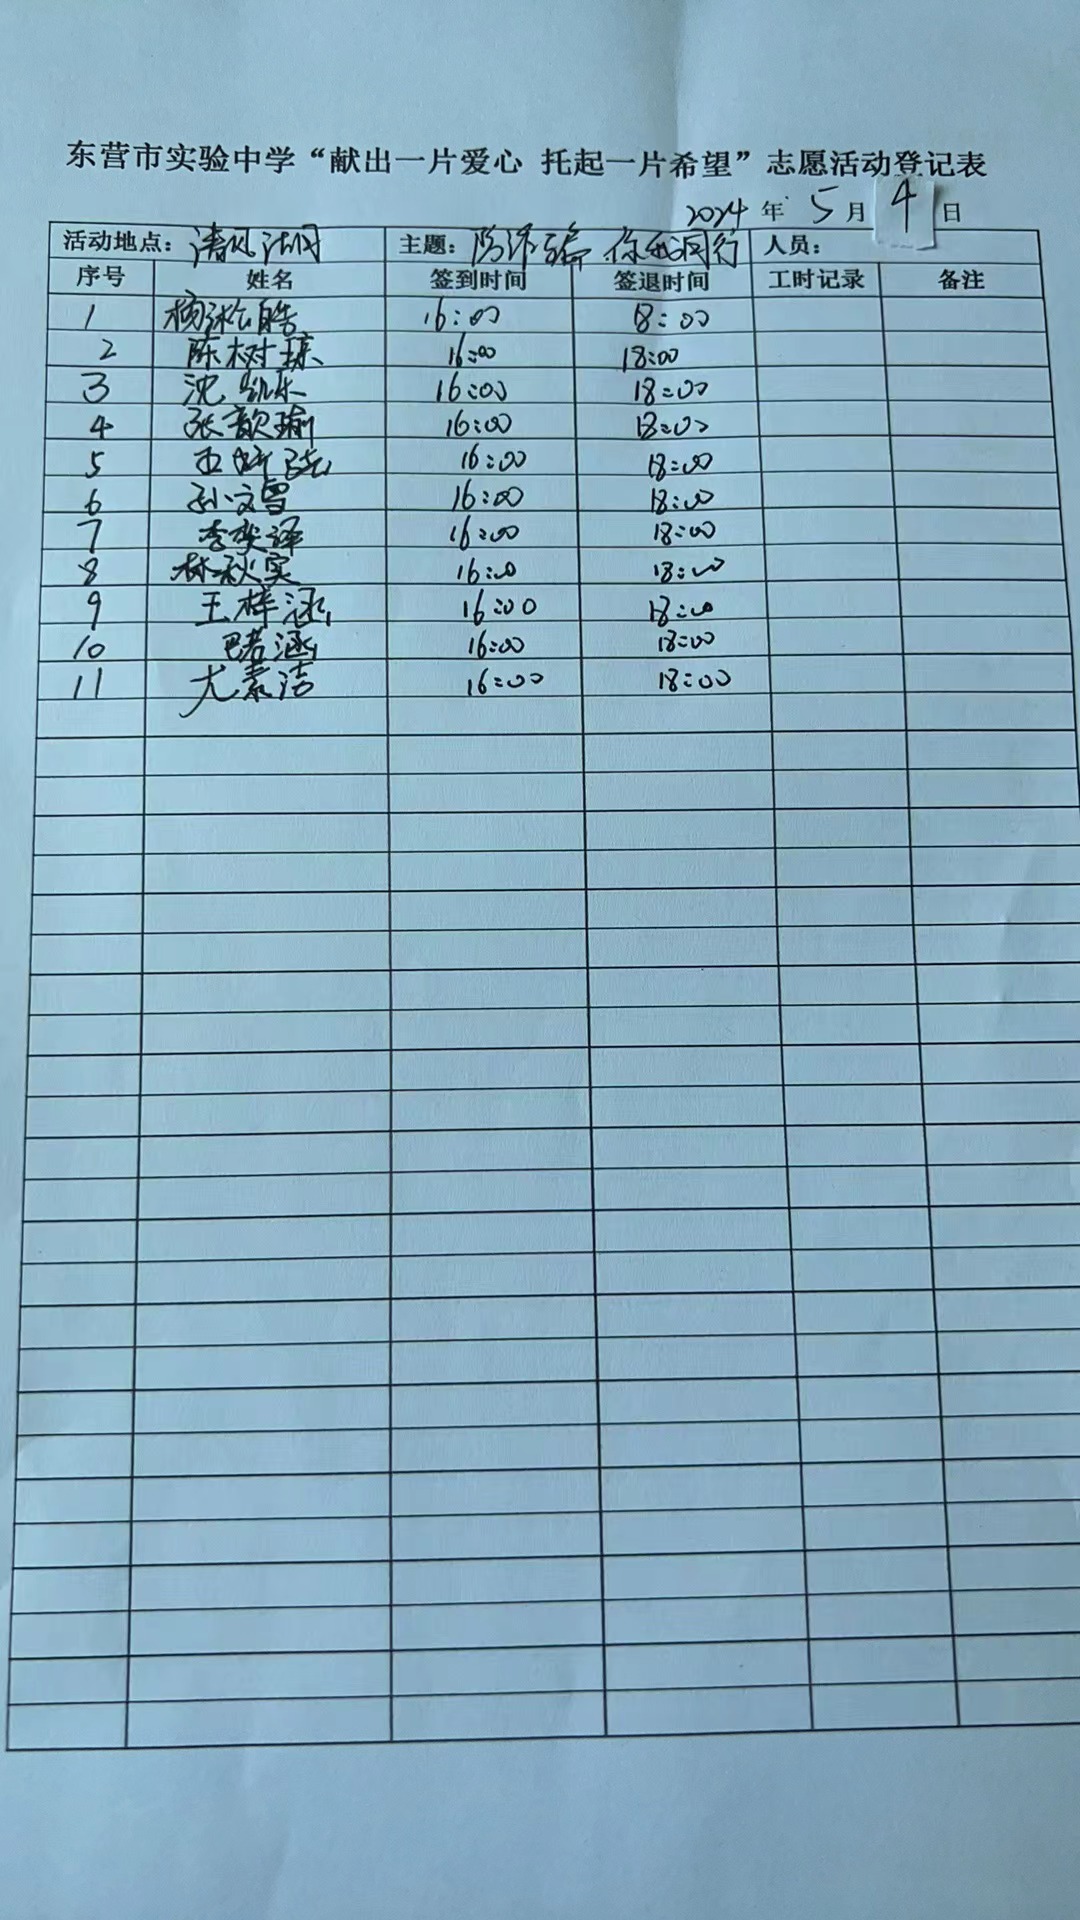 东营市实验中学“献出一片爱心 托起一片希望”志愿活动登记表
2024 年 5 月 4 日
活动地点：清风湖 主题：防诈骗 你我同行 人员：
序号 姓名 签到时间 签退时间 工时记录 备注
1 杨 皓 16:00 18:00
2 陈树 16:00 18:00
3 沈凯乐 16:00 18:00
4 张歆瑜 16:00 18:00
5 16:00 18:00
6 孙文雪 16:00 18:00
7 李奕译 16:00 18:00
8 林秋实 16:00 18:00
9 王梓涵 16:00 18:00
10 涵 16:00 18:00
11 尤素洁 16:00 18:00